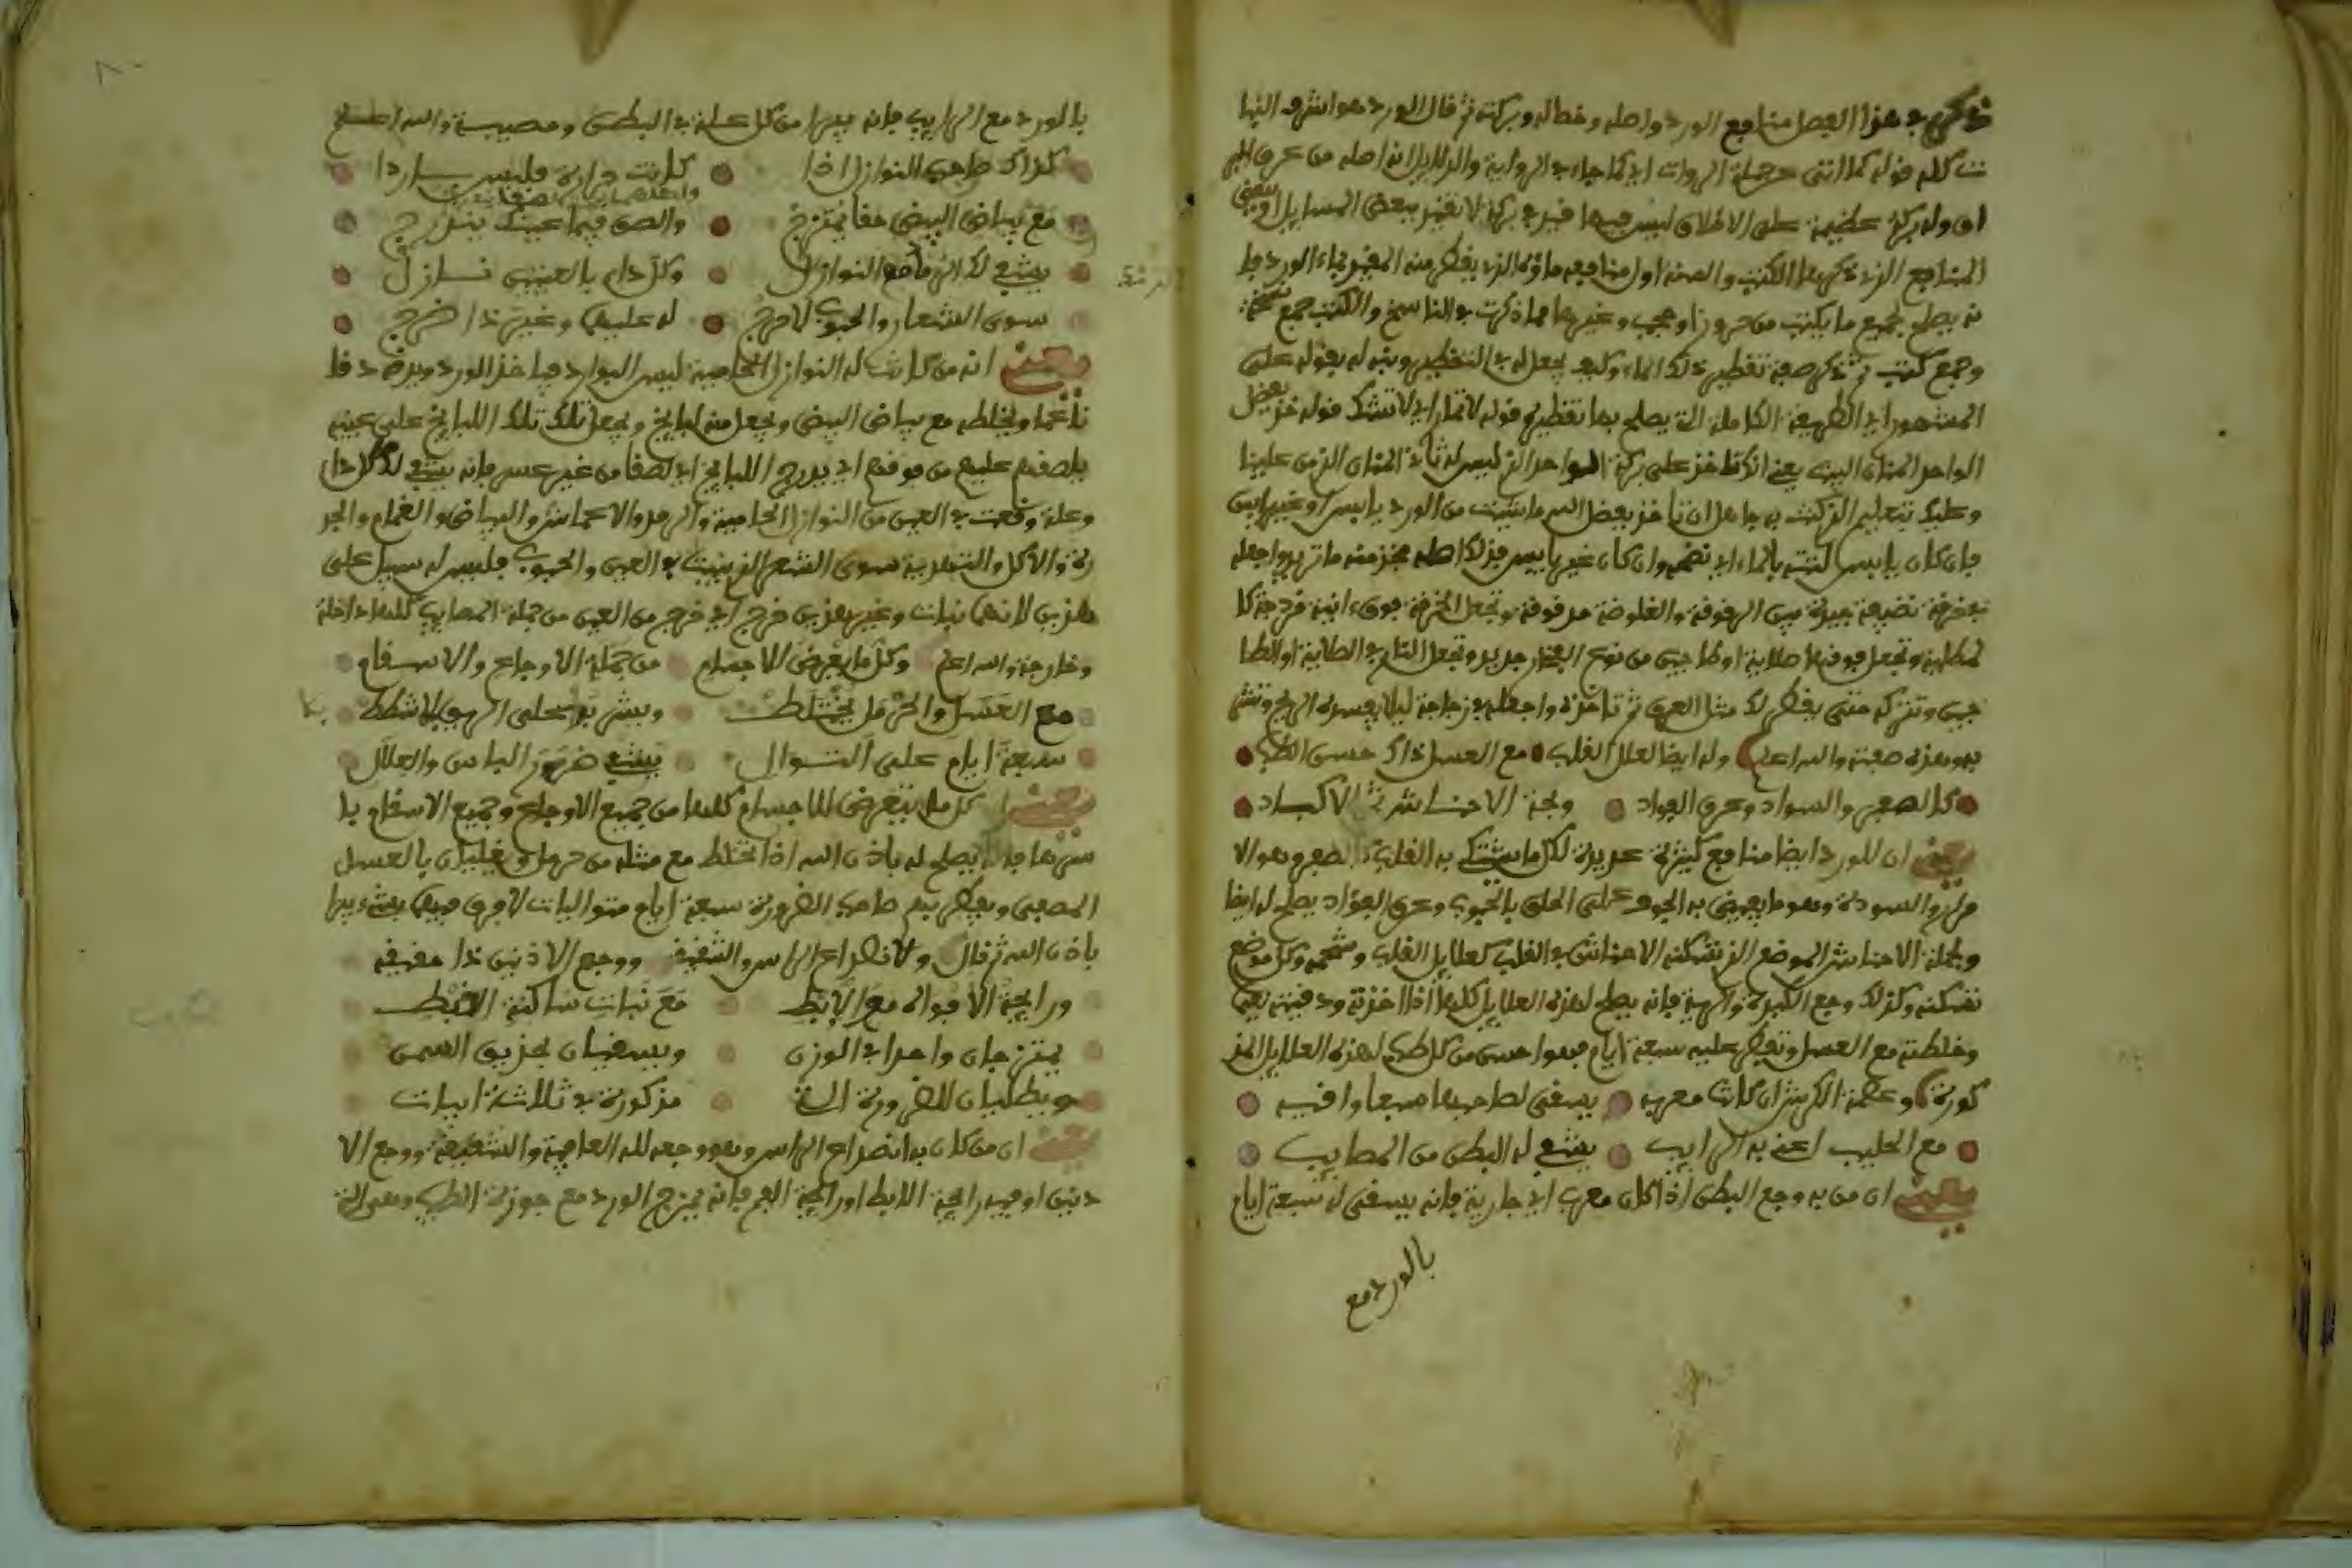 ذكر في هذا الفصل منافع الورد واصله وخصاله وبركته ثم قال الورد هو اشرف النبا
ت كله قوله كما اتى عن جملة الروات اي كما جاء في الرواية والدلايل انه اصله من عرق
اي وله بركة عظيمة على الاطلاق ليس فيها قيد في بركة لا تقيد ببعض المسايل او
المنافع الذي ذكرها الكتب والصنة اول منافعه ماؤه الذي يفطر منه المقير بماء الورد فا
نه يصلح بجميع ما يكتب من حروز او حجب وغيرها مما ذكرت في الناسخ والكتب جمع
وجمع كتب ثم ذكر صفة تفطير ذلك الماء وكيف يجعل له في التفطير وبينه له بقوله على
المشهور اي الطريقة الكاملة التي يصلح بها تفطيره قوله لا تمار اي لا تشك قوله خذ بفضل
الواحد المنان البيت يعني انك تاخذ على بركة الواحد الذي ليس له ثاني المنان الذي من علينا
وعليك بتعليم الذي كنت به جاهل ان تاخذ بفضل الله ما شيت من الورد يابس او غير يابس
فان كان يابس لتته بالماء اي نضحه وان كان غير يابس فذلك اصله فخذ منه ما تريد واجعله
بخرقة نضيفة جيدة بين الرقوقة والغلوضة مرقوقة وتجعل الخرقة فوق انية قدحة كا
لمطلية وتجعل فوقها طلاية او طاجين من نوع الفخار جديد وتجعل النار في الطلاية او الطا
جين وتتركه حتى يفطر لك مثل العرق ثم تاخذه واجعله في زجاجة ليلا يفسده الريح وتنش
به وهذه صفته والله اعلم وله ايضا لعلل القلب مع العسل ذاك حسن الطب
كالصفر والسواد وعرق الفواد ولجة الاحناش ثم الاكباد
يعني ان للورد ايضا منافع كثيرة عديدة لكل ما يشتكي به القلب كالصفر وهو الا
صفر والسودة وهو ما يعرض به الجوف على الحلق بالحبوب وعرق الفؤاد يصلح له ايضا
ولجلة الاحناش الموضع الذي تسكنه الاحناش في القلب كعلايل القلب وشحمه وكل موضع
تسكنه وكذلك وجع الكبدة والرية فانه يصلح لهذه العلايل كلها اذا اخذته ودقيته نعما
وخلطته مع العسل وتفطر عليه سبعة ايام فهو احسن من كل طب لهذه العلايل المذ
كورة وعلة الكرش ان كانت معربه يسقى لصاحبها سبعا وافيه
مع الحليب اعني به الرايب يشفي له البطن من المصايب
يعني ان من به وجع البطن اذا كان معرب اي جارية فانه يسقى له سبعة ايام
بالورد مع
بالورد مع الرايب فانه يبرا من كل علة في البطن ومصيبة والله اعلم
كذاك صاحب النوازل اذا كانت حارة فليس باردا
مع بياض البيض حقا يمتزج والصق فيما عينك يندرج
يشفي لذاك الرمد مع النوازل وكل داء بالعين نازل
سوى الشعار والحبوب لا حرج له عليها وغير ذا خرج
يعني انه من كانت له النوازل الحامية ليس البوارد فياخذ الورد ويدقه دقا
ناعما ويخلطه مع بياض البيض ويجعل منه لبايخ ويجعل تلك تلك اللبايخ على عينيه
يلصقهم عليهم من فوقهم اي يدرج اللبايخ اي لصقا من غير عسر فانه يشفي لذلك كل داء
وعلة وقعت في العين من النوازل الحامية والرمد والاعماش والبياض والغمام والجر
رة والاكل والتدمية سوى الشعر الذي ينبت في العين والحبوب فليس له سبيل على
هذين لانهما نبات وغير هذين خرج اي خرج من العين من جملة المصايب كلها داخلة
وخارجة والله اعلم وكل ما يعرض للاجسام من جملة الاوجاع والاسقام
مع العسل والحرمل يختلط ويشربه على الريق بلا شطط
سبعة ايام على التوال يشفي ضرر الباس والعلال
يعني كل ما يتعرض للاجسام كلها من جميع الاوجاع وجميع الاسقام با
سرها فانه يصلح له باذن الله اذا اختلط مع مثله من حرمل ويغليان بالعسل
المصفى ويفطر بهم صاحب الضرورة سبعة ايام متواليات لا فرق فيها يشفى يبرا
باذن الله ثم قال ولانصداع الراس والشقيفه ووجع الاذنين ذا حقيقه
ورايحة الافواه مع الابط مع نبات ساكنة
يمتزجان واحدا في الوزن ويسقيان بحزيق السمن
ويطليان للضرورة التي مذكورة في ثلاثة ابيات
يعني ان من كان به انصداع الراس وهو وجعه كله العافية والشقيقة ووجع الا
ذنين او فيه رايحة الابط او رايحة الفم فانه يمزج الورد مع جوزة الطيب وهي التي